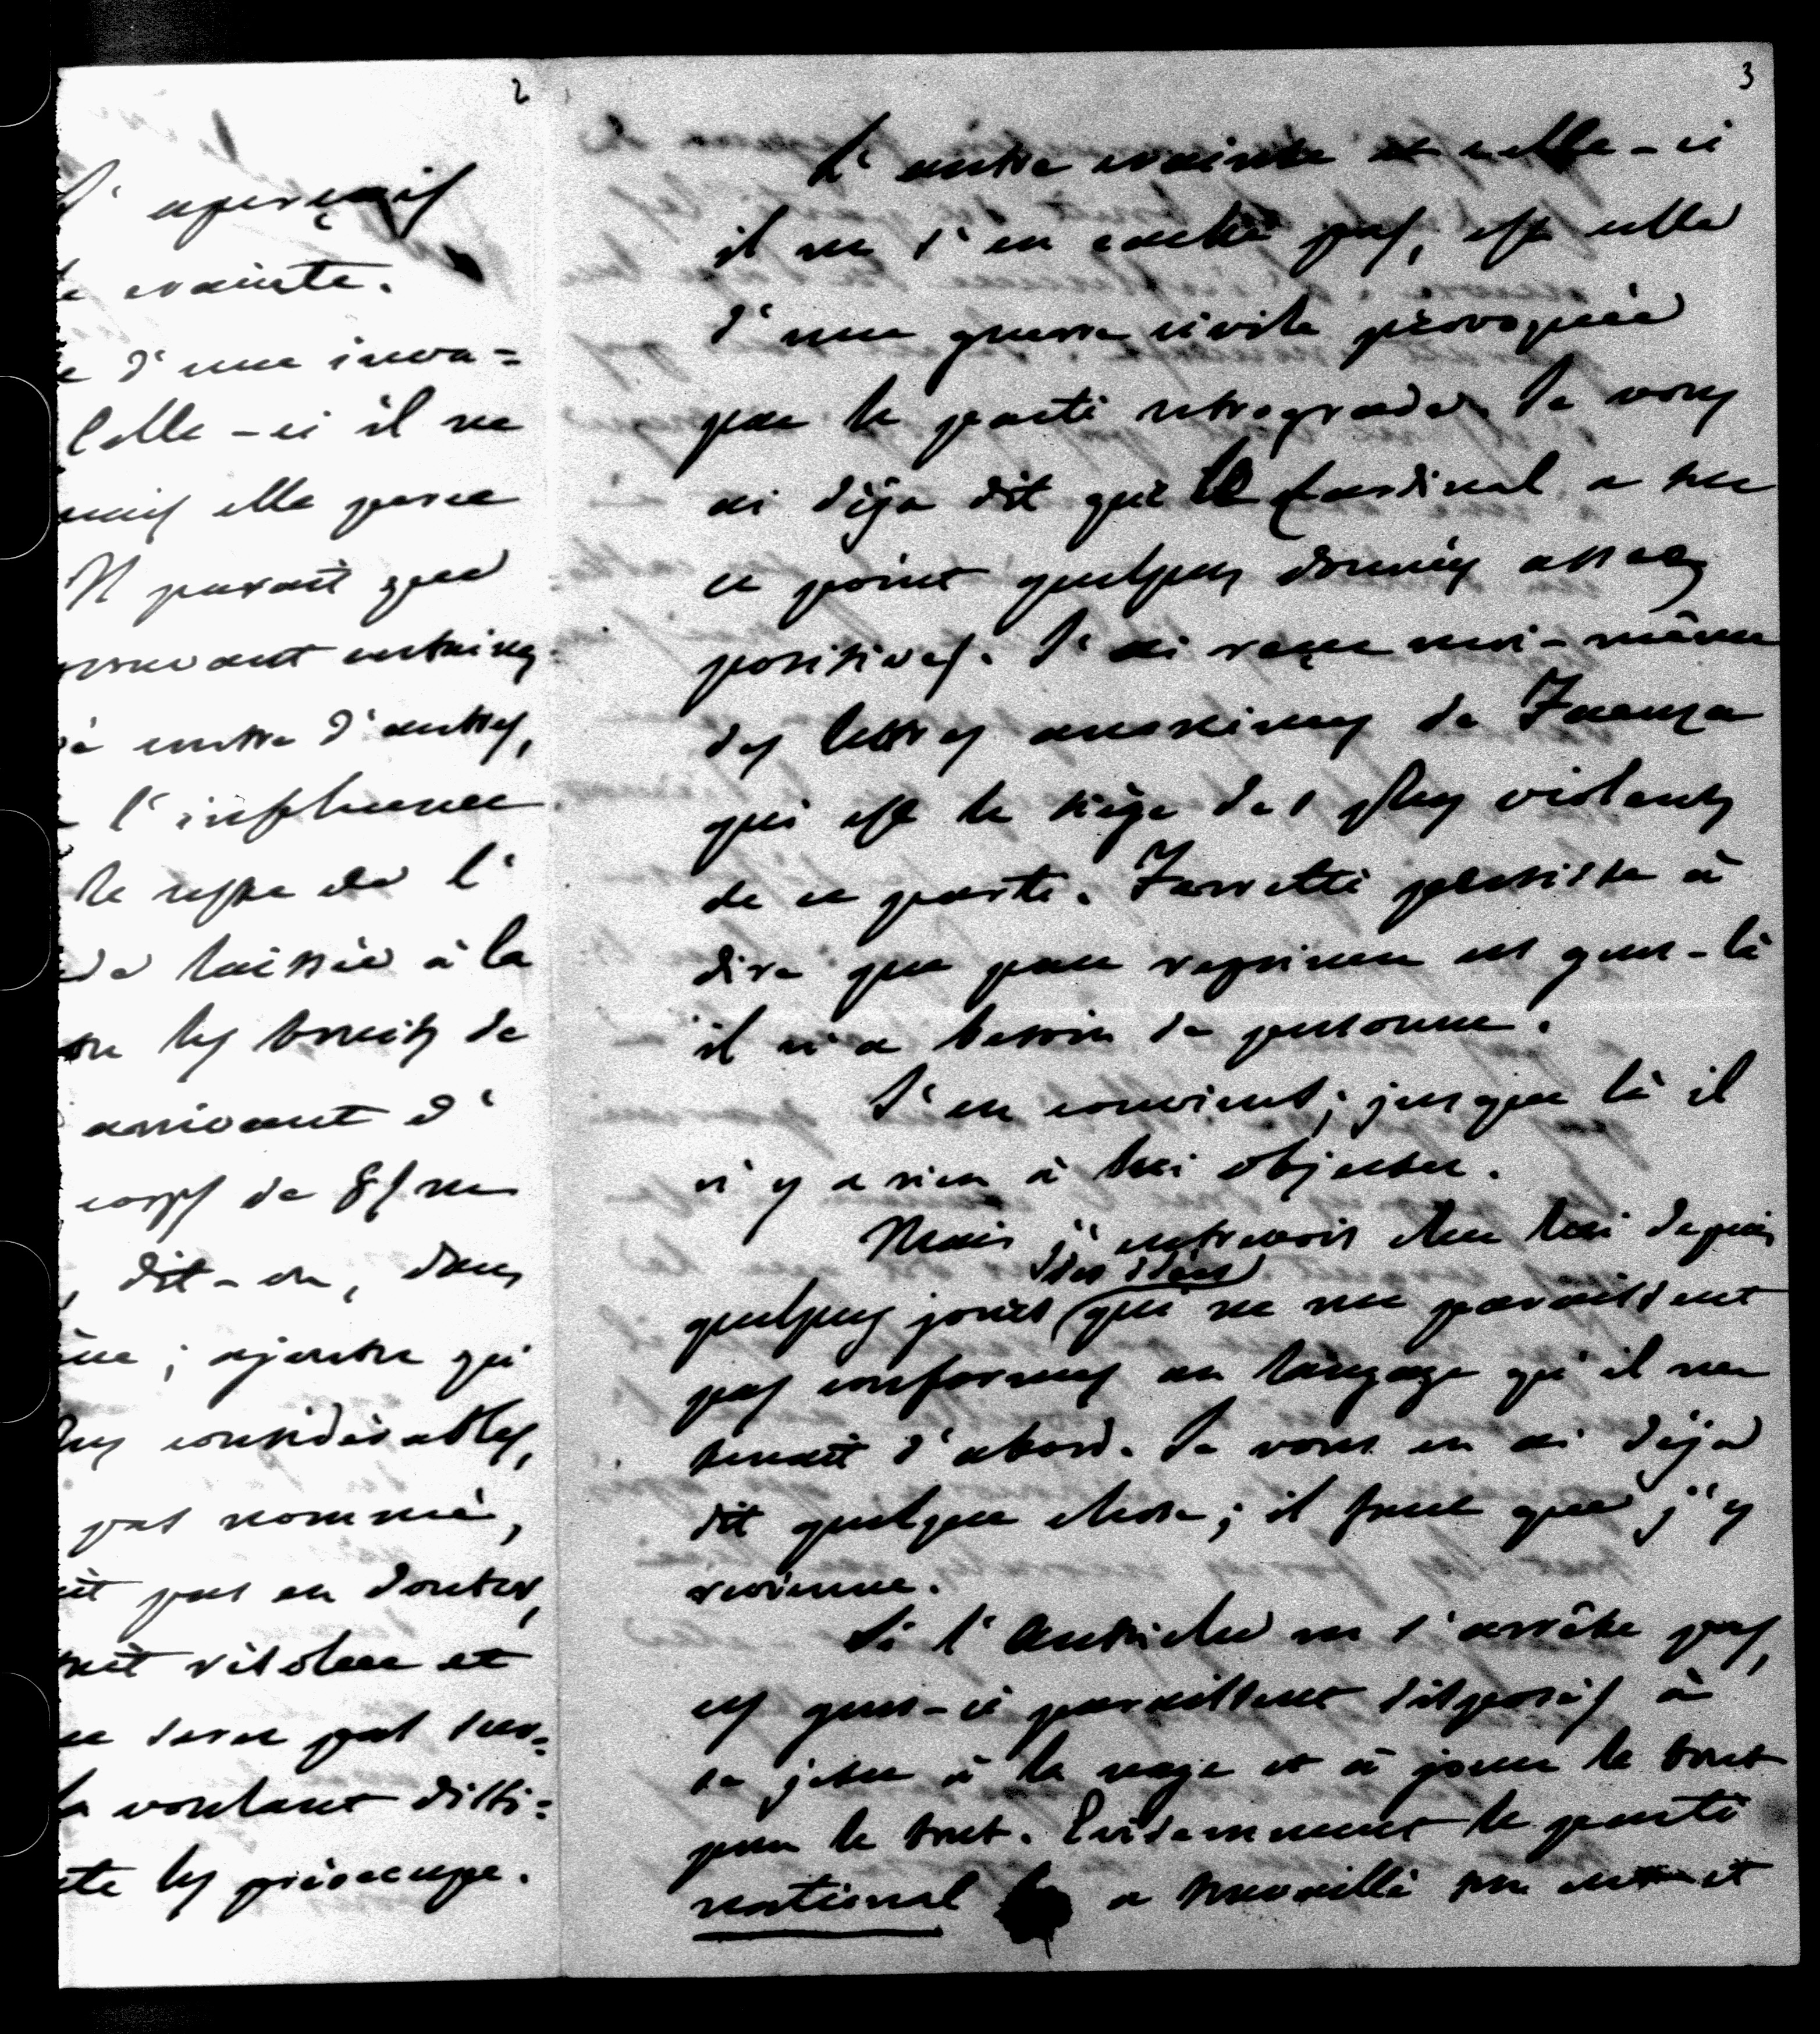 2
j' aperçois
crainte.
d'une inva=
Celle-ci il ne
mais elle perce
Il parait que
certaines
entre d'autres,
l'influence
le reste de l'
laissée à la
les bruits de
arrivant d'
corps de
, dit-on, dans
; ajoutre qu'
considérables,
pas nommé,
pas en douter,
résolue et
sera pas sur=
voulant dissi=
les préoccupe.
3
L'autre crainte et celle-ci
il ne s'en cache pas, est celle
d'une guerre civile provoquée
par le parti retrograde. Je vous
ai déja dit que le Cardinal a sur
ce point quelques données assez
positives. J'ai reçu moi-même
des lettres anonimes de Faenza
qui est le siège des plus violents
de ce parti. Farretti persiste à
dire que pour reprimer ces gens-là
il n'a besoin de personne.
J'en conviens; jusque là il
n'y a rien à lui objecter.
Mais j'entrevois chez lui depuis
quelques jours des idées qui ne me paraissent
pas conformes au langage qu'il me
tenait d'abord. Je vous en ai déja
dit quelque chose; il faut que j'y
revienne.
Si l'Autriche ne s'arrête pas,
ces gens-ci paraissent disposés à
se jeter à la nage et à jouer le tout
pour le tout. Evidemment le parti
national a travaillé sur eux et